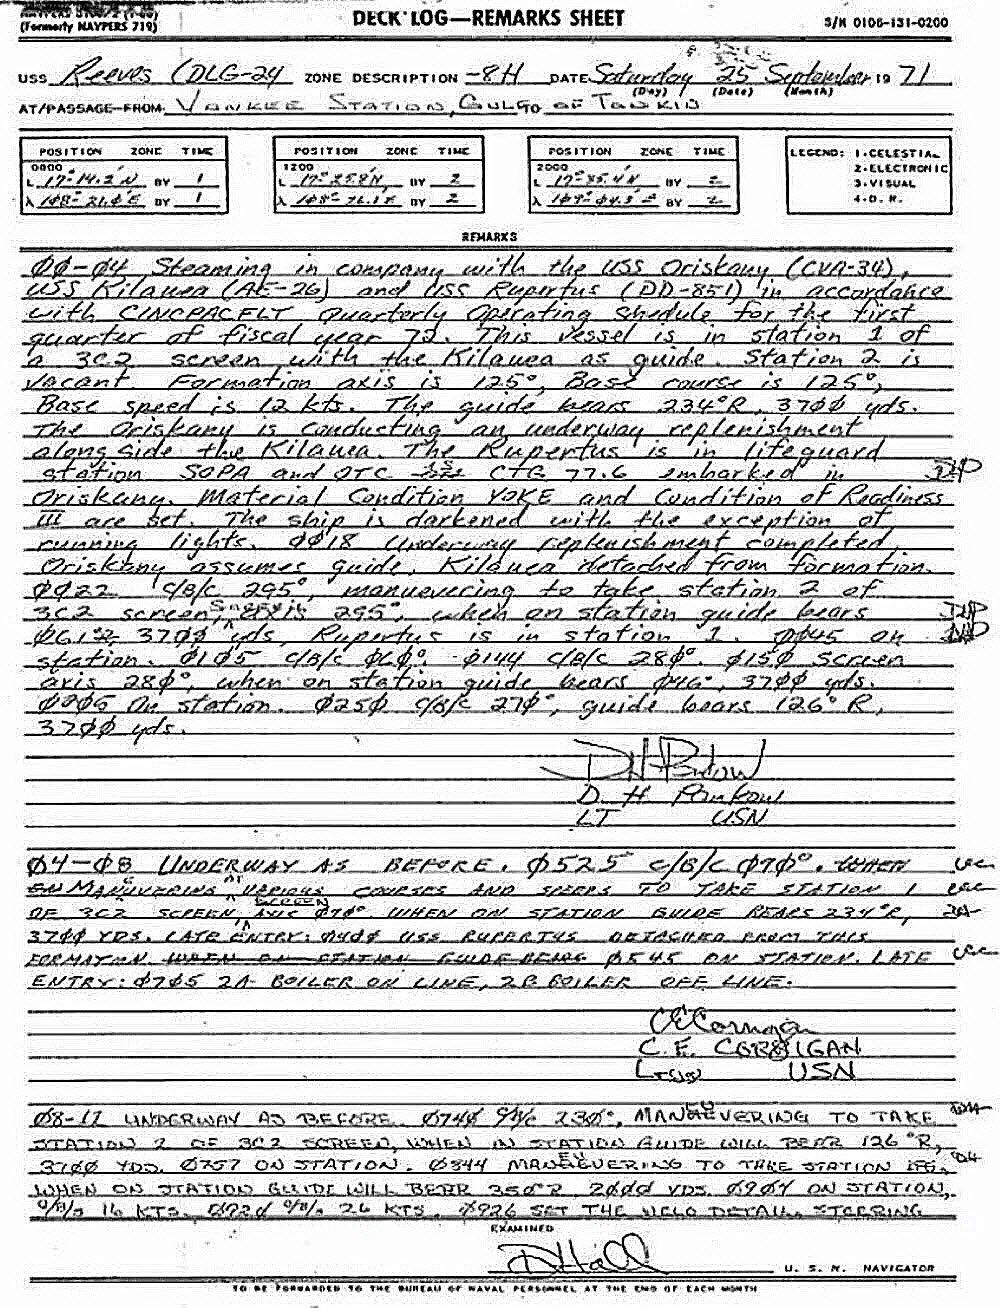 (Formerly NAVPERS 719)
DECK LOG—REMARKS SHEET
S/N 0106-131-0200
USS Reeves (DLG-24 ZONE DESCRIPTION -8H DATE Saturday 25 September 19 71
(Day) (Date) (Month)
AT/PASSAGE—FROM Yankee Station, Gulf TO of Tonkin
POSITION ZONE TIME
0800
L 17°-14.2'N BY 1
λ BY 1
POSITION ZONE TIME
1200
L 17°-25.8'N BY 2
λ BY 2
POSITION ZONE TIME
2000
L BY 2
λ BY 2
LEGEND: 1-CELESTIAL
2-ELECTRONIC
3-VISUAL
4-D. R.
REMARKS
ØØ-Ø4 Steaming in company with the USS Oriskany (CVA-34),
USS Kilauea (AE-26) and USS Rupertus (DD-851) in accordance
with CINCPACFLT Quarterly Operating Shedule for the first
quarter of fiscal year 72. This vessel is in station 1 of
a 3C2 screen with the Kilauea as guide. Station 2 is
vacant Formation axis is 125°, Base course is 125°,
Base speed is 12 kts. The guide bears 234°R, 37ØØ yds.
The Oriskany is conducting an underway replenishment
along side the Kilauea. The Rupertus is in lifeguard
station SOPA and OTC CTG 77.6 embarked in
Oriskany. Material Condition YOKE and Condition of Readiness
III are set. The ship is darkened with the exception of
running lights. ØØ18 Underway replenishment completed,
Oriskany assumes guide, Kilauea detached from formation.
ØØ22 C/B/C 295°, manuevering to take station 2 of
3C2 screen, Screen axis 295°, when on station guide bears
37ØØ yds, Rupertus is in station 1. ØØ45 on
station. Ø1Ø5 C/B/C Ø6Ø°. Ø144 C/B/C 28Ø°. Ø15Ø Screen
axis 28Ø°, when on station guide bears Ø46°, 37ØØ yds.
Ø2Ø5 On station. Ø25Ø C/B/C 27Ø°, guide bears 126°R,
37ØØ yds.
D. H Pankow
LT USN
Ø4-Ø8 UNDERWAY AS BEFORE. Ø525 C/B/C Ø7Ø°. WHEN
MANUVERING AT VARIOUS COURSES AND SPEEDS TO TAKE STATION 1
OF 3C2 SCREEN, SCREEN AXIS Ø7Ø° WHEN ON STATION GUIDE BEARS 234°R,
37ØØ YDS. LATE ENTRY: Ø4Ø4 USS RUPERTUS DETACHED FROM THIS
FORMATION. WHEN ON STATION GUIDE BEARS Ø545 ON STATION. LATE
ENTRY: Ø7Ø5 2A BOILER ON LINE, 2B BOILER OFF LINE.
C.E. CORRIGAN
LTJG USN
Ø8-12 UNDERWAY AS BEFORE. Ø74Ø C/B/C 23Ø°, MANEUVERING TO TAKE
STATION 2 OF 3C2 SCREEN, WHEN IN STATION GUIDE WILL BEAR 126°R,
37ØØ YDS. Ø757 ON STATION. Ø844 MANEUVERING TO TAKE STATION
WHEN ON STATION GUIDE WILL BEAR 35Ø°R 2ØØØ YDS. Ø9Ø4 ON STATION,
C/B/S 16 KTS. Ø92Ø C/B/S 26 KTS. Ø926 SET THE HELO DETAIL. STEERING
EXAMINED
D Hall
U. S. N. NAVIGATOR
TO BE FORWARDED TO THE BUREAU OF NAVAL PERSONNEL AT THE END OF EACH MONTH